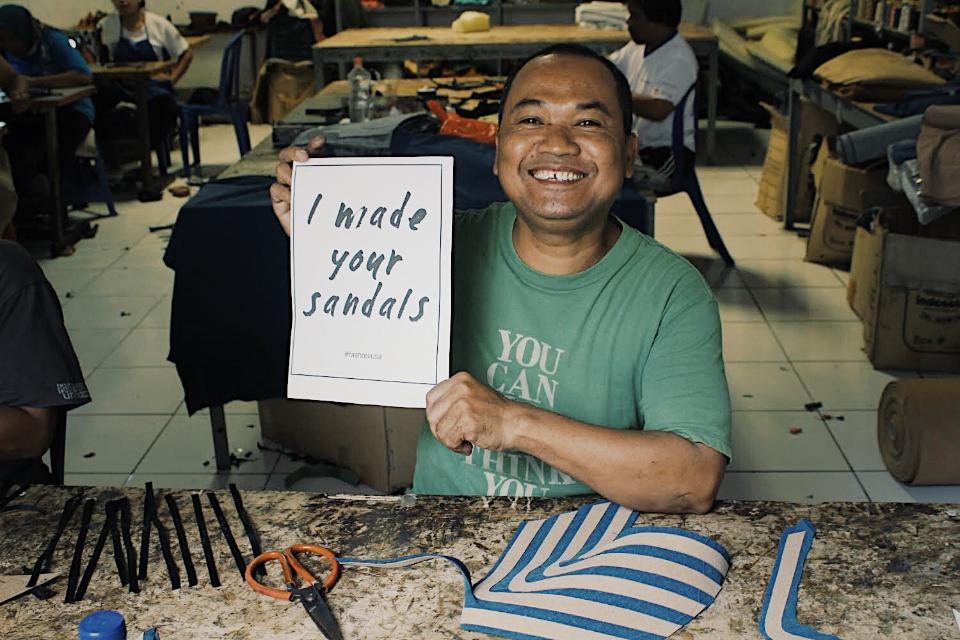 I made
your
sandals
#fashrevusa
YOU
CAN
THINK
YOU